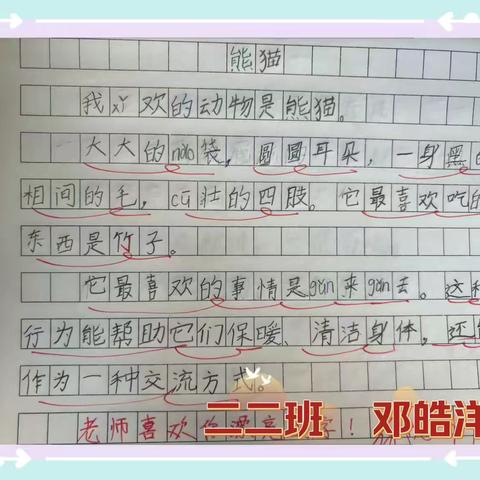 熊猫
我xǐ欢的动物是熊猫。
大大的nǎo袋，圆圆耳朵，一身黑
相间的毛，cū壮的四肢。它最喜欢吃的
东西是竹子。
它最喜欢的事情是gǔn来gǔn去。这种
行为能帮助它们保暖、清洁身体，还
作为一种交流方式。
老师喜欢你漂亮 字！
二二班 邓皓洋